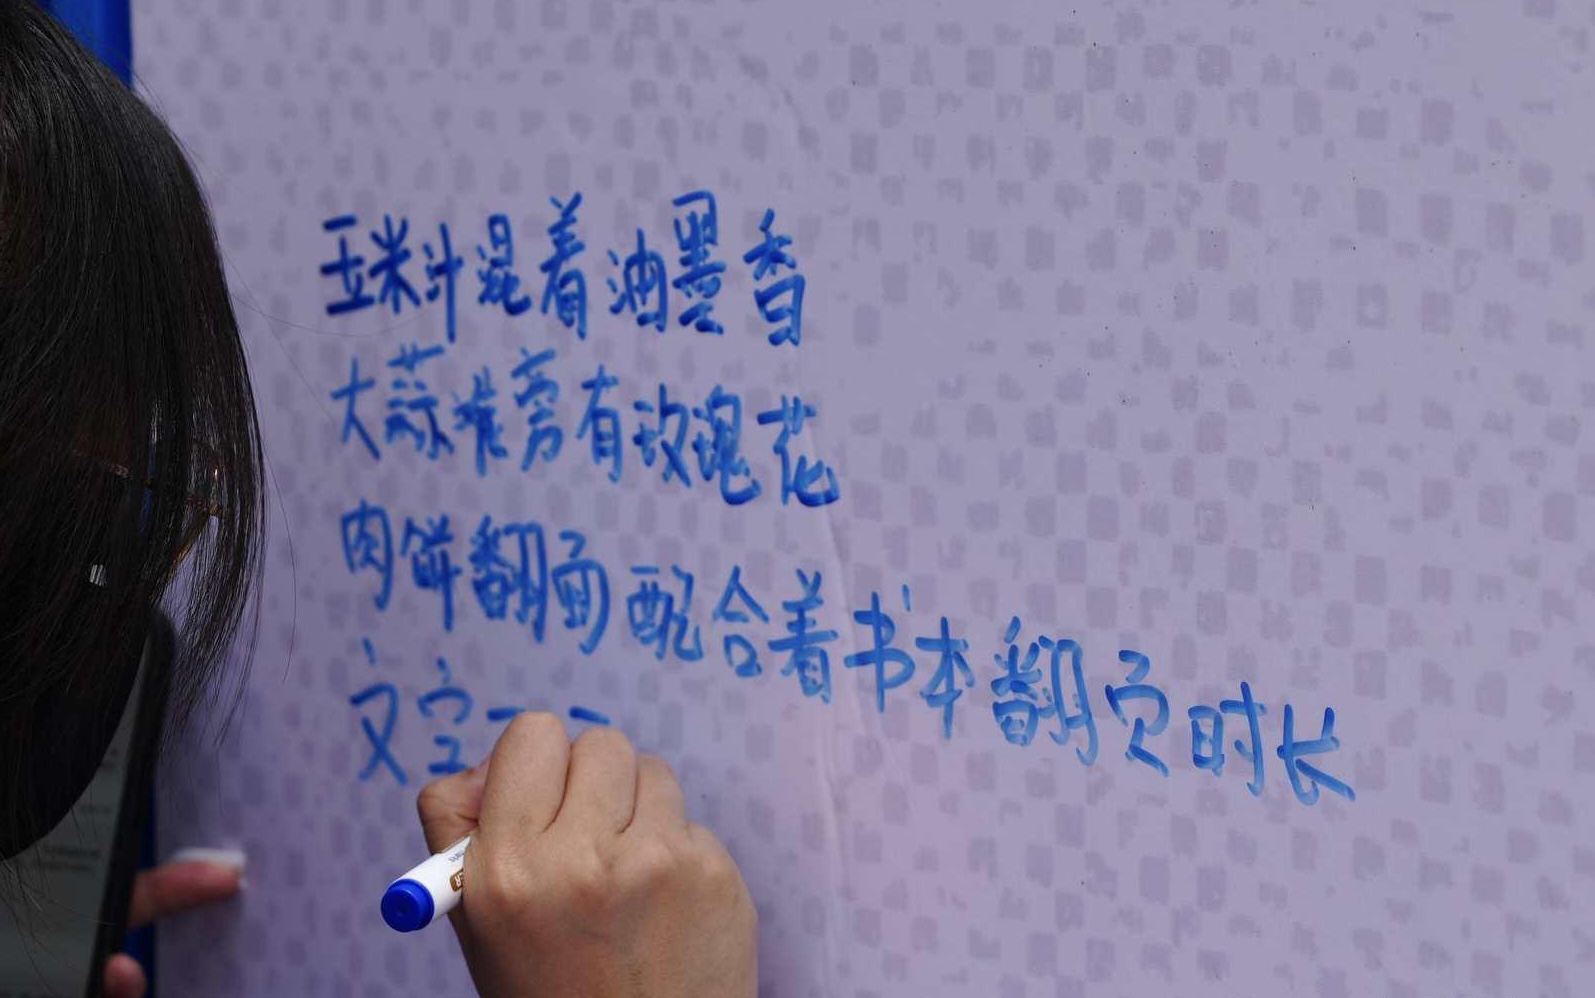 玉米汁混着油墨香
大蒜堆旁有玫瑰花
肉饼翻面配合着书本翻页时长
文字